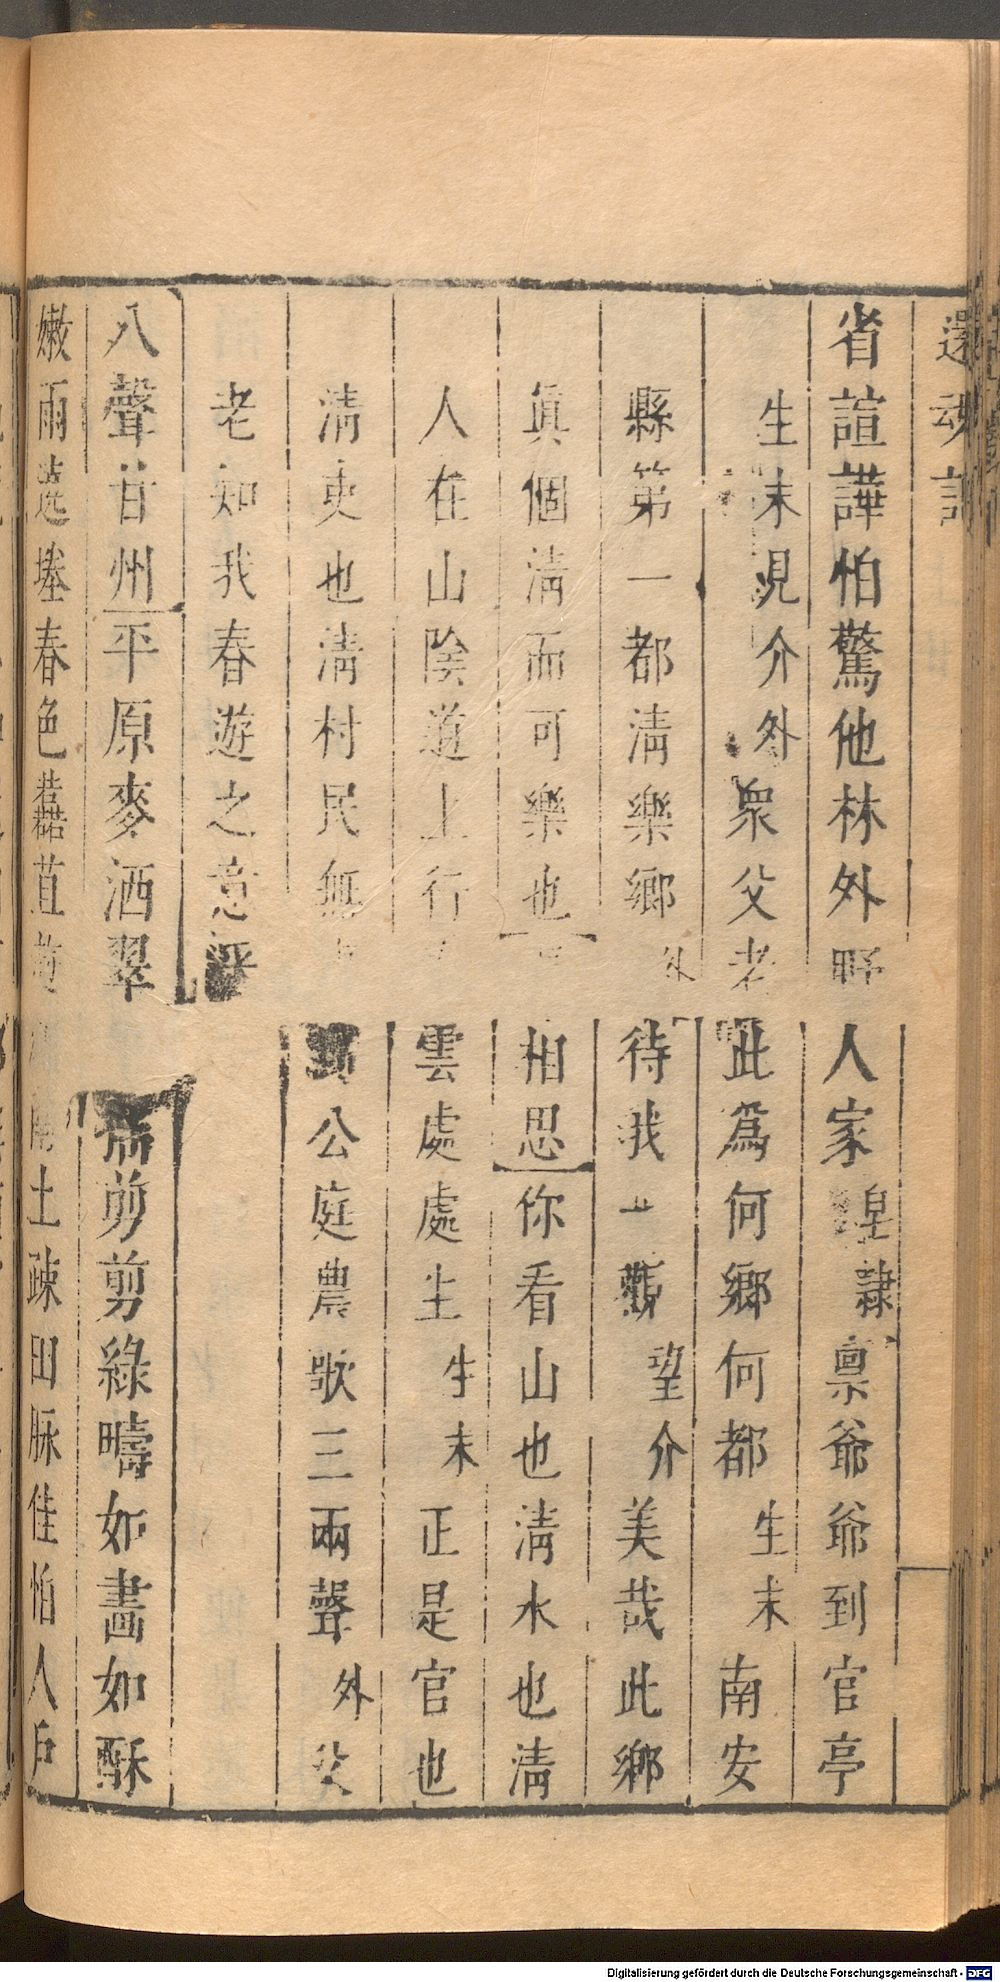 還魂記
省諠譁怕驚他林外野人家皂隷禀爺爺到官亭
生末見介外衆父老此爲何鄉何都生末南安
縣第一都清樂鄉外待我一觀望介美哉此鄉
眞個清而可樂也相思你看山也清水也清
人在山陰道上行雲處處生生末正是官也
清吏也清村民無到公庭農歌三兩聲外父
老知我春遊之意乎
八聲甘州平原麥洒翠剪剪綠疇如畫如酥
嫩雨遶塍春色苴土疎田脉佳怕人戶
Digitalisierung gefördert durch die Deutsche Forschungsgemeinschaft - DFG